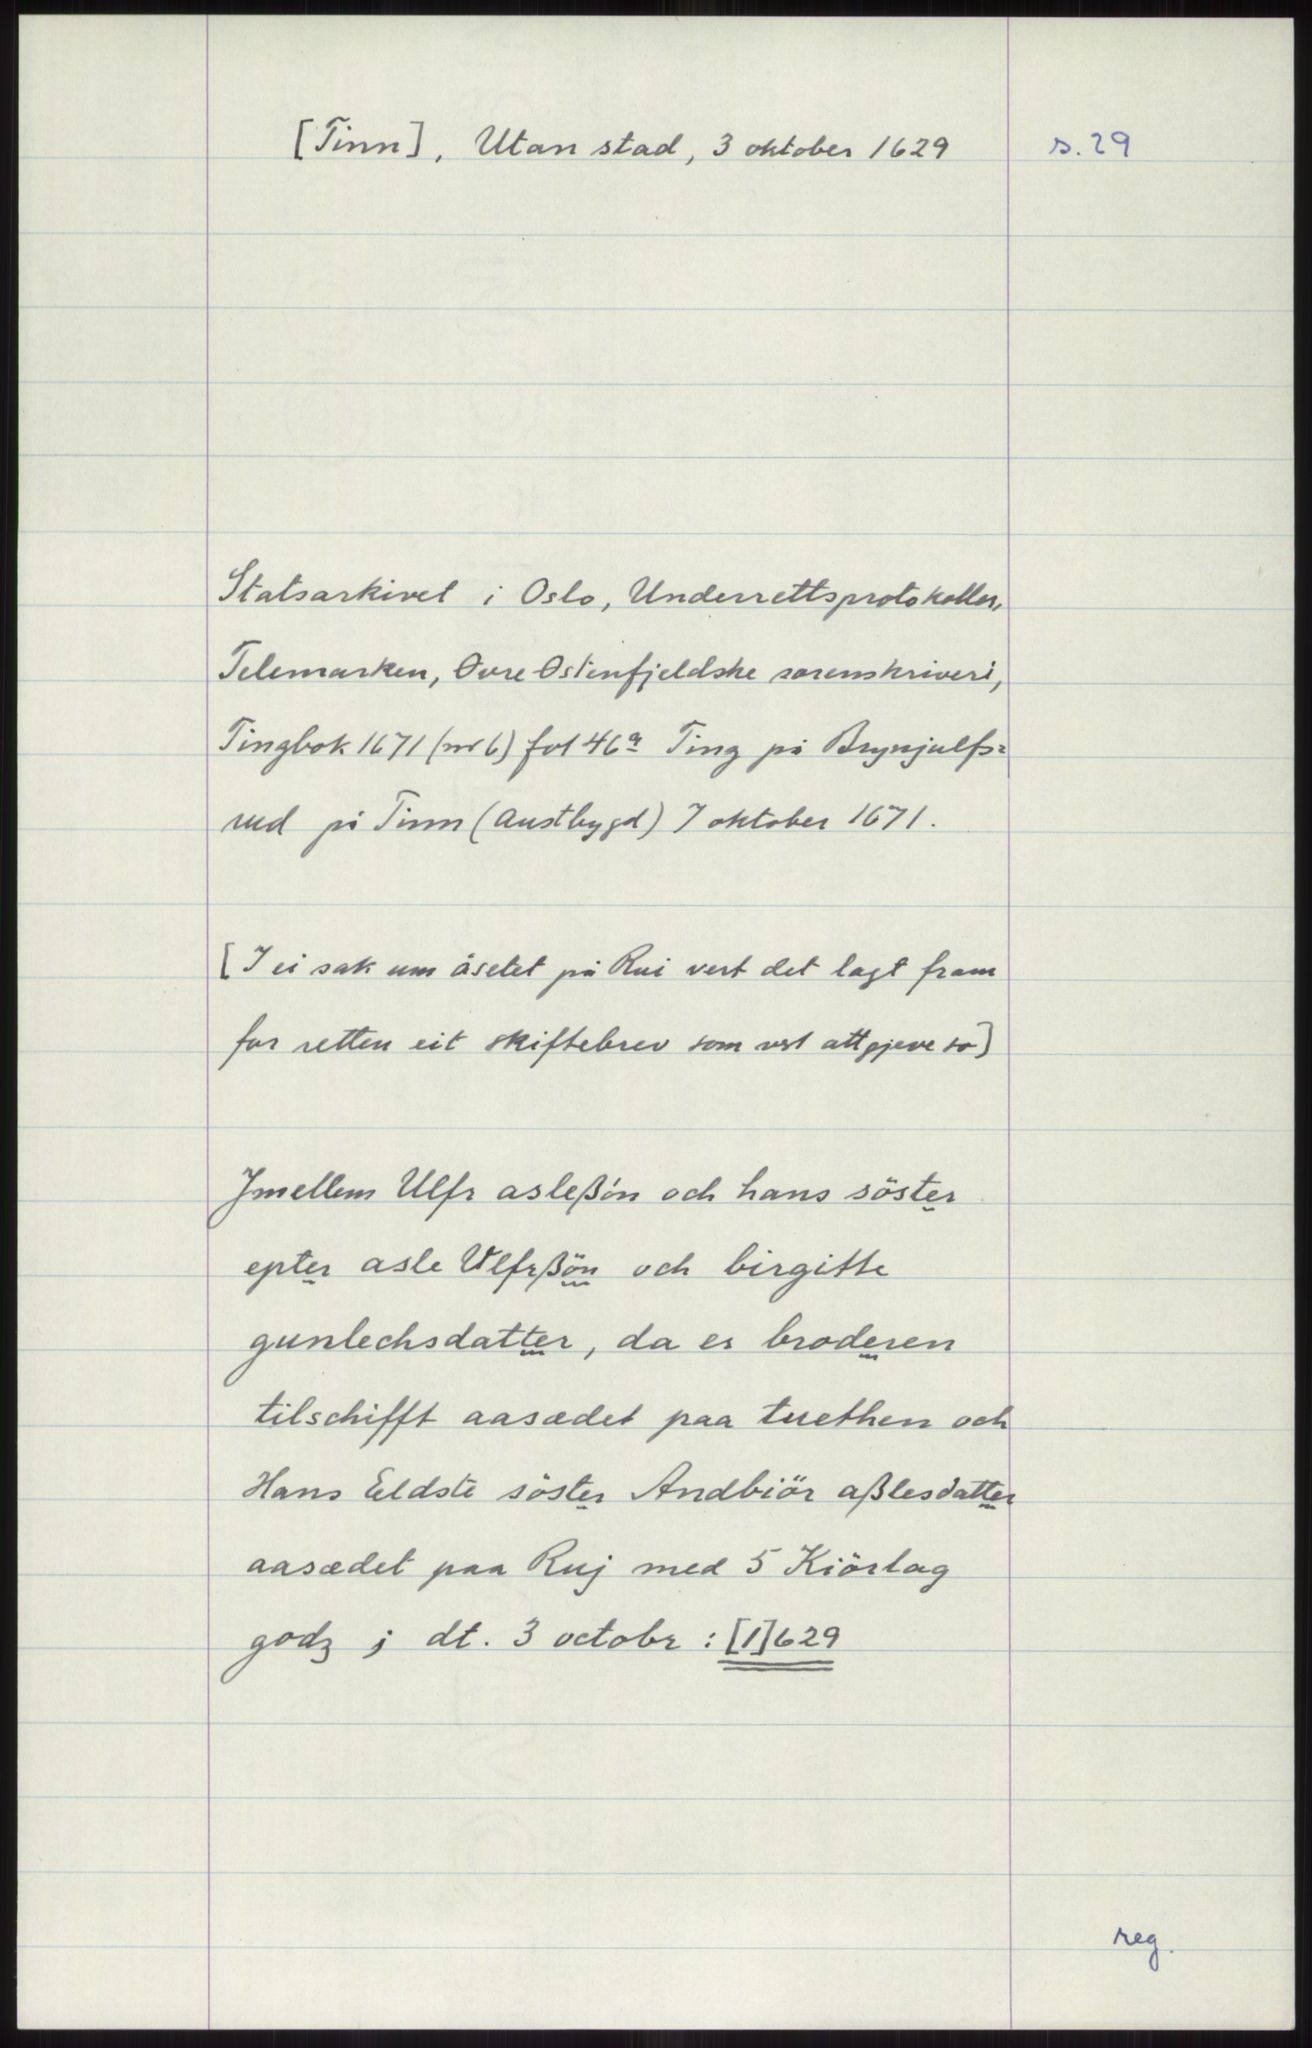 [Tinn], Utan stad, 3 oktober 1629 s. 29
Statsarkivet i Oslo, Underrettsprotokoller,
Telemarken, Øvre Østenfjeldske sorenskriveri,
Tingbok 1671 (nr 6) fol 46a Ting på Brynjulfs=
rud på Tinn (Austbygd) 7 oktober 1671.
[I ei sak um åsetet på Rui vert det lagt fram
for retten eit skiftebrev som vert attgjeve so]
Jmellem Ulfr asleßön och hans söster
epter asle Vlfrßön och birgitte
gunlechsdatter, da er broderen
tilschifft aasædet paa tuethen och
Hans Eeldste söster Andbiör aßlesdatter
aasædet paa Ruj med 5 Kiörlag
godz j dt. 3 octobr : [1]629
reg.